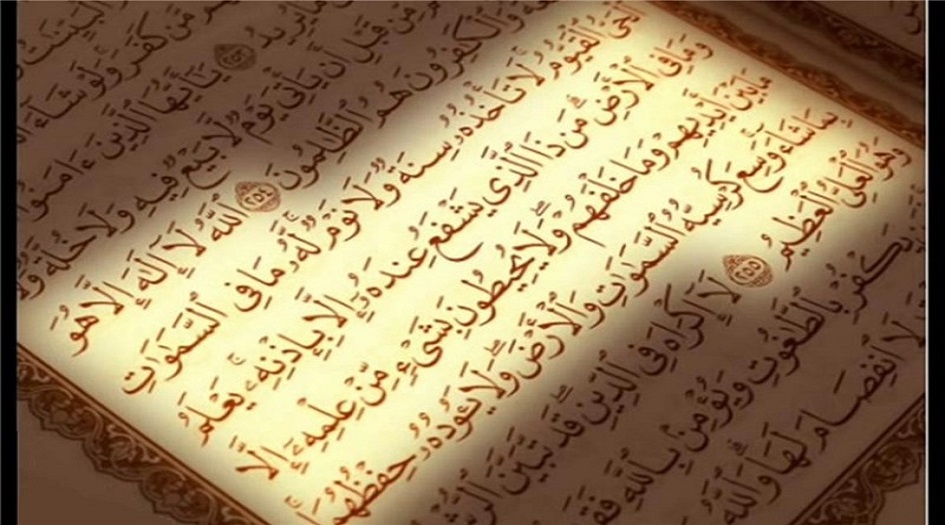 ٱلْبَيِّنَٰتُ
مَّن كَفَرَ وَلَوْ شَآءَ
يُرِيدُ ٢٥٣ يَٰٓأَيُّهَا ٱلَّذِينَ ءَامَنُوٓا۟
مِّن قَبْلِ أَن يَأْتِىَ يَوْمٌ لَّا بَيْعٌ فِيهِ وَلَا خُلَّةٌ وَلَا
وَٱلْكَٰفِرُونَ هُمُ ٱلظَّٰلِمُونَ ٢٥٤ ٱللَّهُ لَآ إِلَٰهَ إِلَّا هُوَ
ٱلْحَىُّ ٱلْقَيُّومُ لَا تَأْخُذُهُۥ سِنَةٌ وَلَا نَوْمٌ لَّهُۥ مَا فِى ٱلسَّمَٰوَٰتِ
وَمَا فِى ٱلْأَرْضِ مَن ذَا ٱلَّذِى يَشْفَعُ عِندَهُۥٓ إِلَّا بِإِذْنِهِۦ يَعْلَمُ
مَا بَيْنَ أَيْدِيهِمْ وَمَا خَلْفَهُمْ وَلَا يُحِيطُونَ بِشَىْءٍ مِّنْ عِلْمِهِۦٓ إِلَّا
بِمَا شَآءَ وَسِعَ كُرْسِيُّهُ ٱلسَّمَٰوَٰتِ وَٱلْأَرْضَ وَلَا يَـُٔودُهُۥ حِفْظُهُمَا
وَهُوَ ٱلْعَلِىُّ ٱلْعَظِيمُ ٢٥٥ لَآ إِكْرَاهَ فِى ٱلدِّينِ قَد تَّبَيَّنَ
يَكْفُرْ بِٱلطَّٰغُوتِ وَيُؤْمِنۢ بِٱللَّهِ فَقَدِ
لَا ٱنفِصَامَ لَهَا وَٱللَّهُ